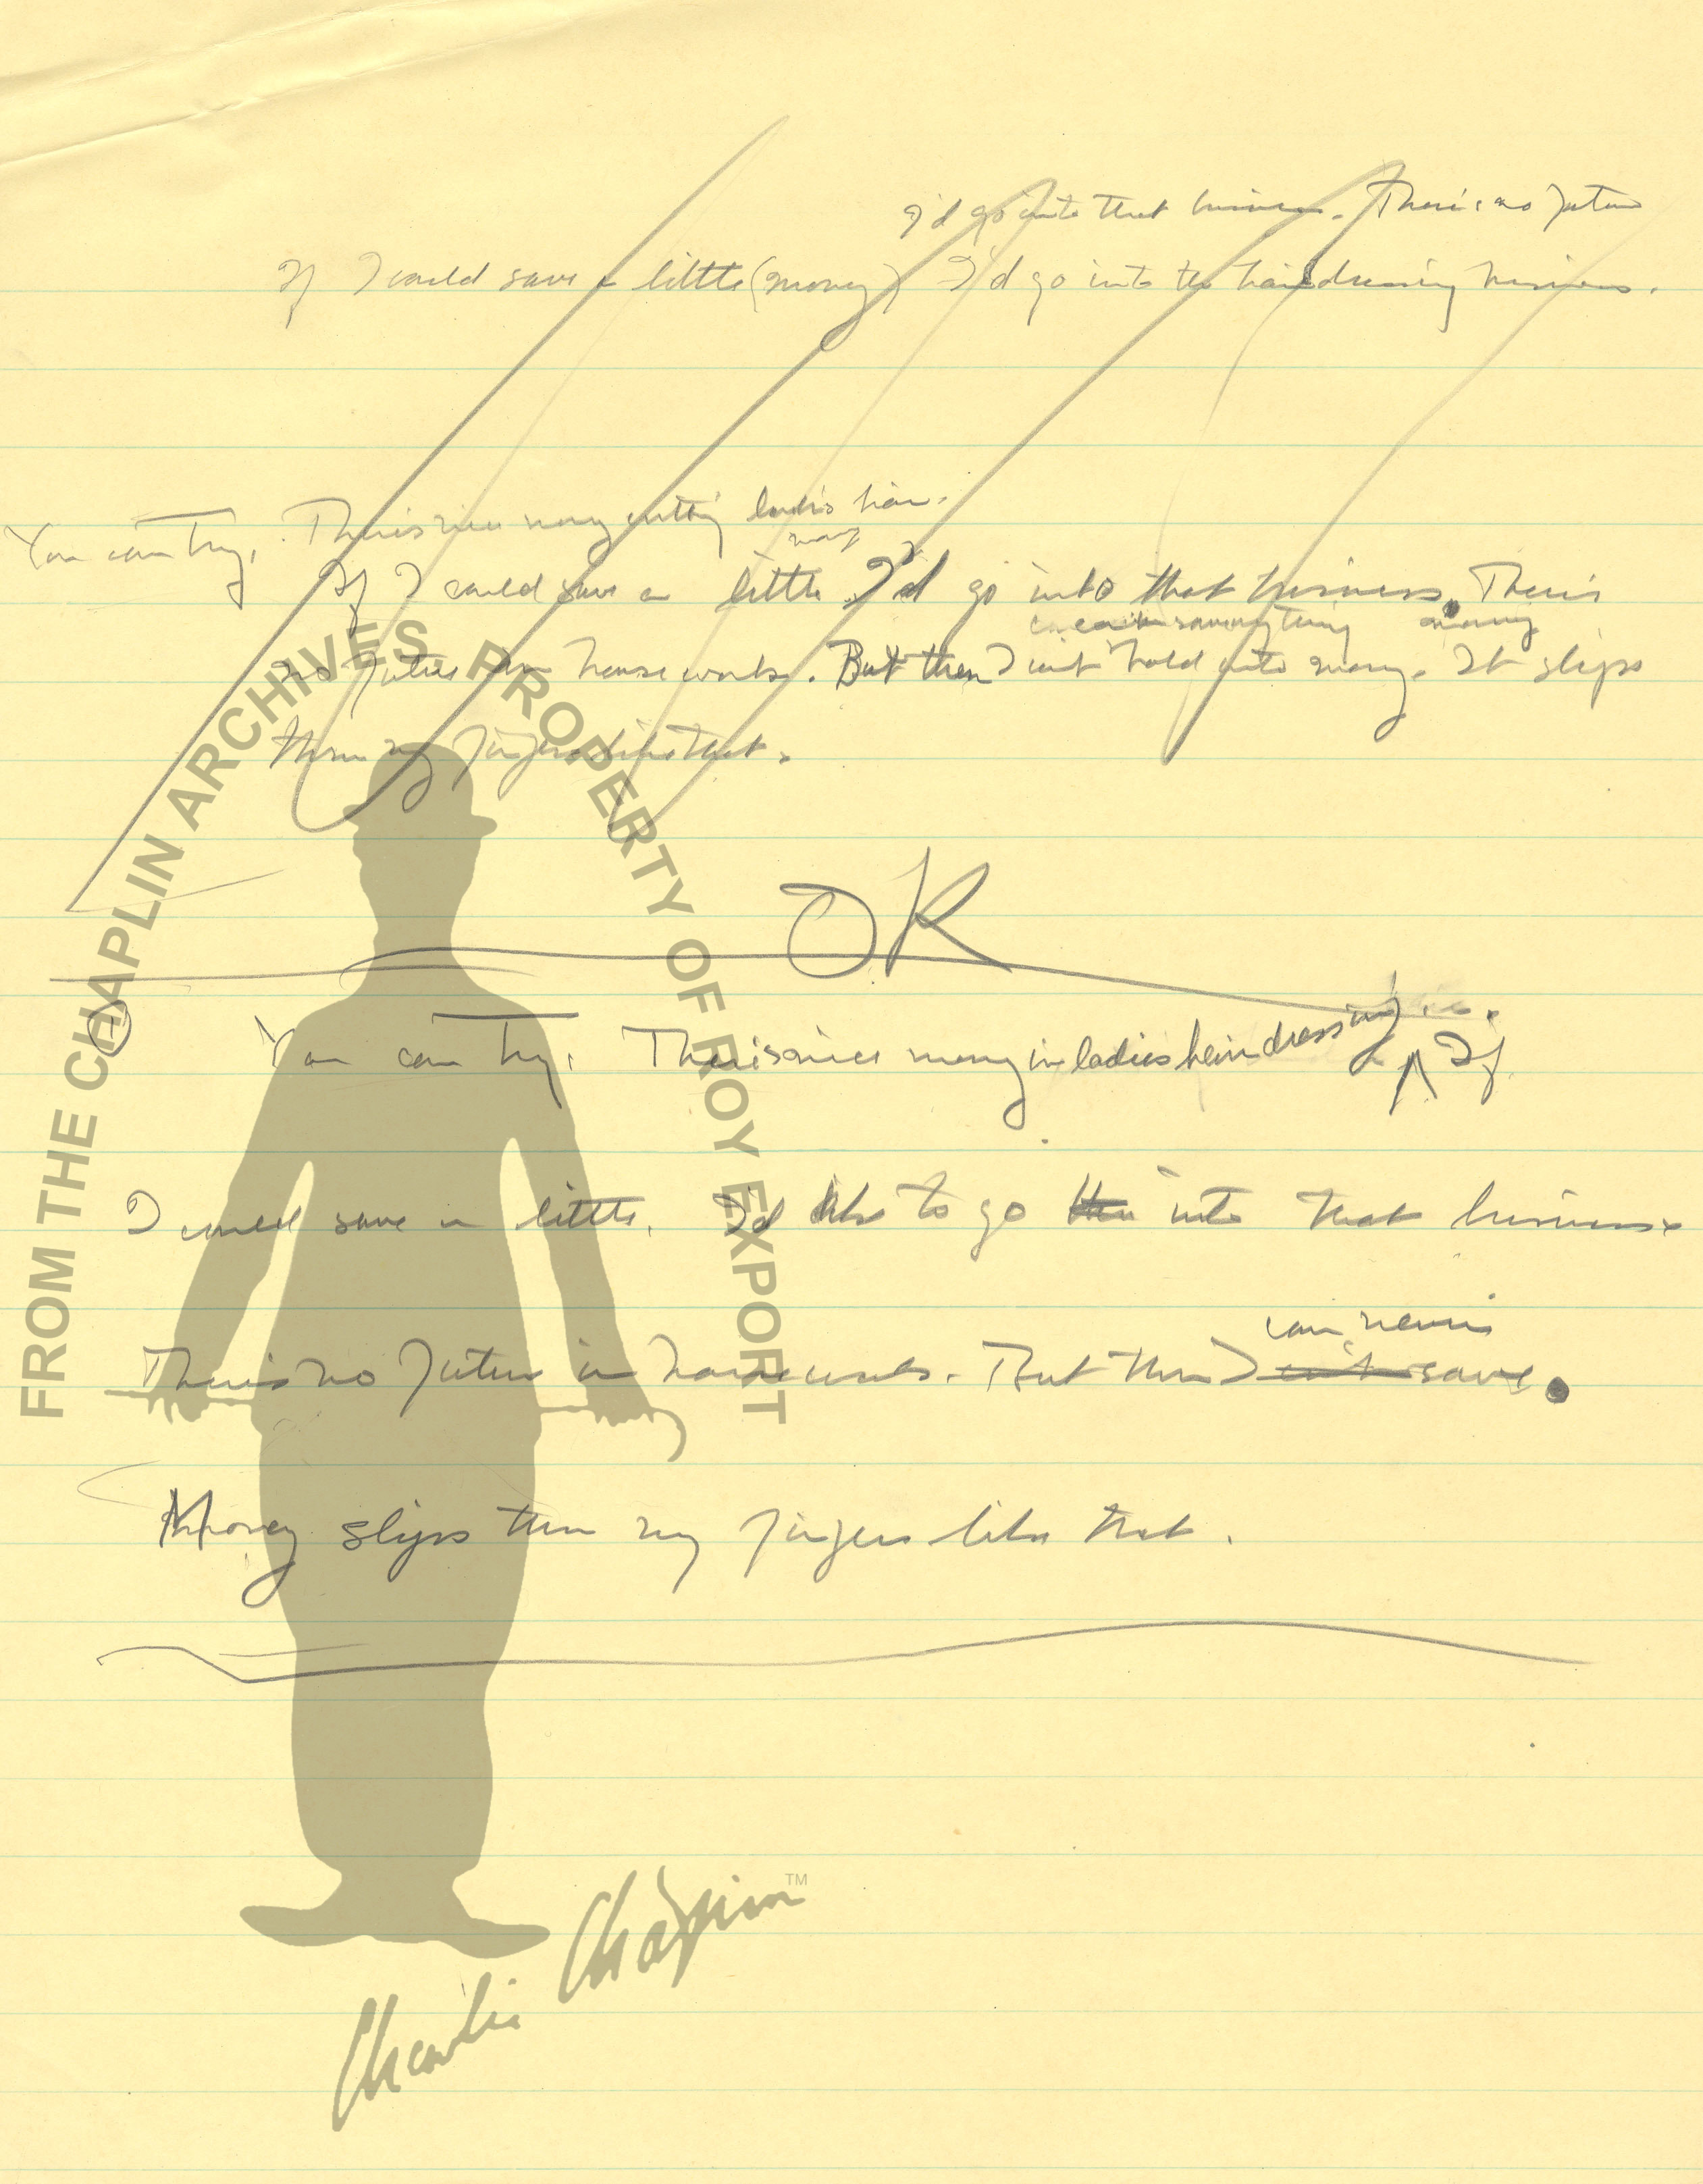 I'd go into that business. There's no future
If I could save a little (money) I'd go into the hairdressing business.
You can try. There's nice money cutting ladies hair.
money
If I could save a little I'd go into that business. There's
can't save anything money
no future in housework. But then I can't hold onto money. It slips
thru my fingers like that.
OK
You can try. There's nice money in ladies hairdressing. If
I could save a little. I'd like to go into that business
can never
There's no future in housework. But then I can't save.
Money slips thru my fingers like that.
FROM THE CHAPLIN ARCHIVES PROPERTY OF ROY EXPORT
Charlie Chaplin™